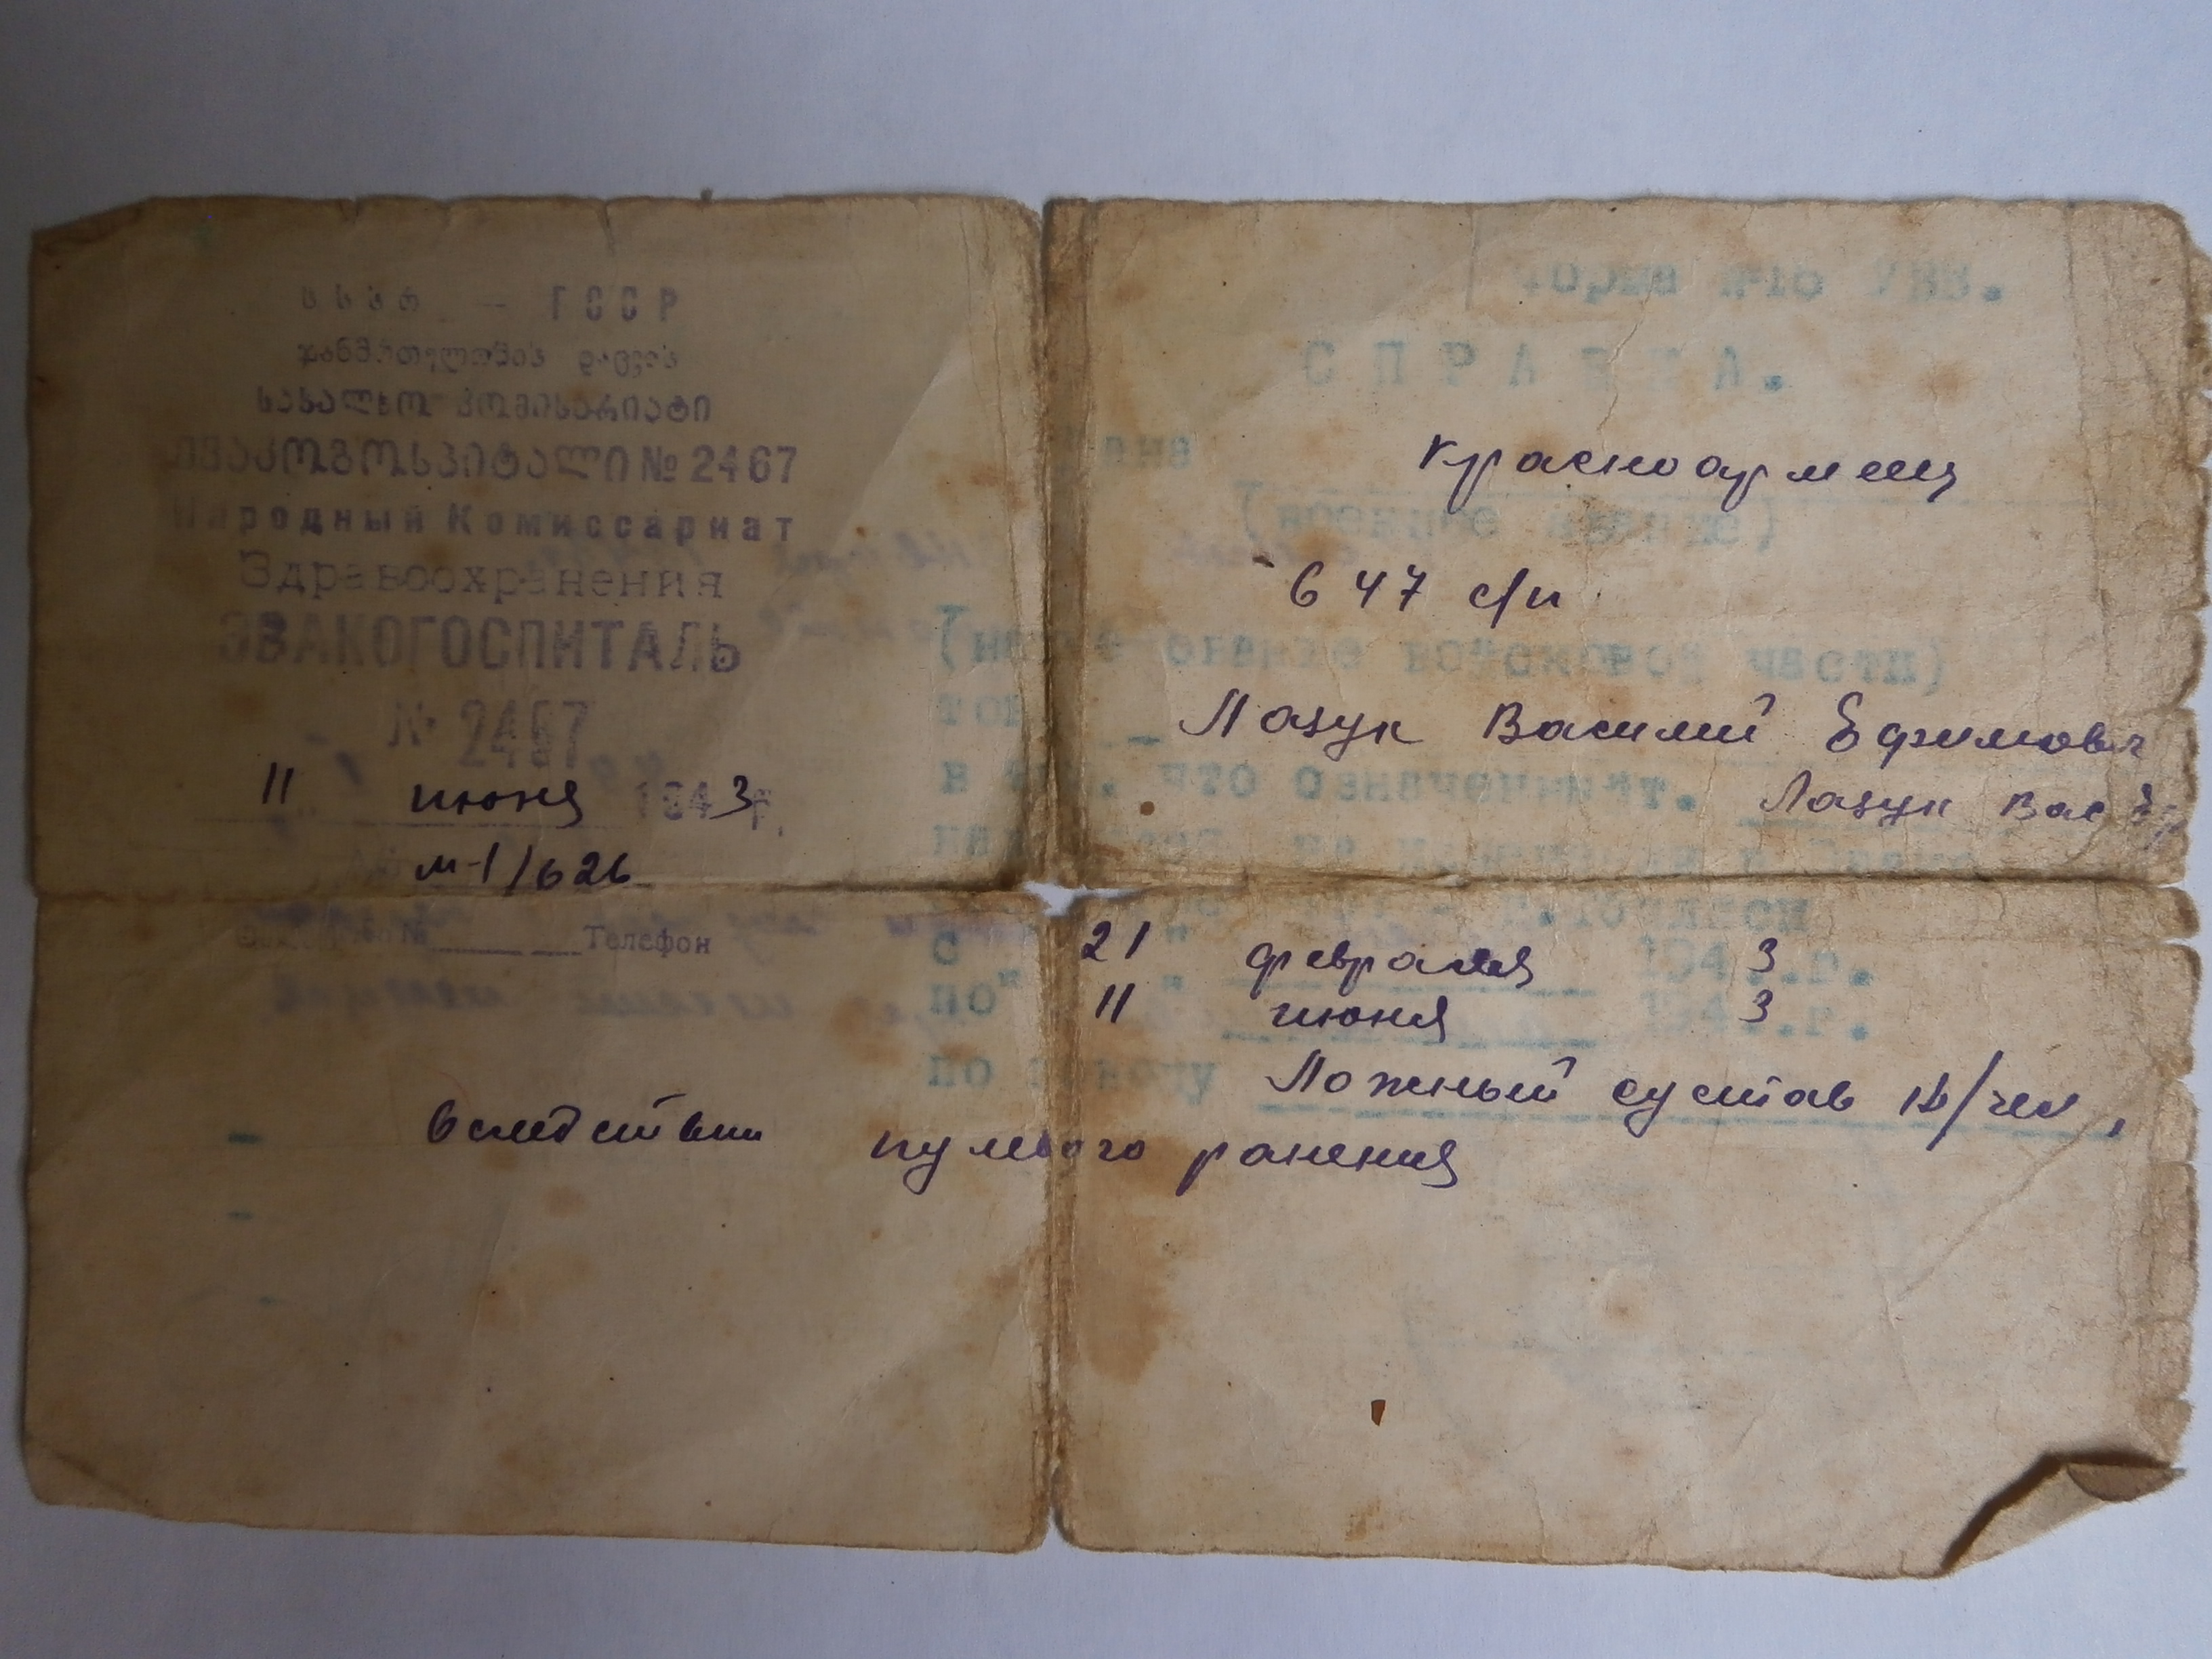 სსსრ — ГССР
ჯანმრთელობის დაცვის
სახალხო კომისარიატი
ევაკოგოსპიტალი № 2467
Народный Комиссариат
Здравоохранения
ЭВАКОГОСПИТАЛЬ
№ 2467
11 июня 1943 г.
м-1/626
Телефон
Форма №16 УВВ.
СПРАВКА.
Дана красноармеец
(военное звание)
647 с/п
(наименование войсковой части)
тов. Лазук Василий Ефимович
в том, что означенный т. Лазук Вас Еф
с 21 " февраля 1943 г.
по " 11 " июня 1943 г.
по поводу Ложный сустав н/чел,
вследствии пулевого ранения